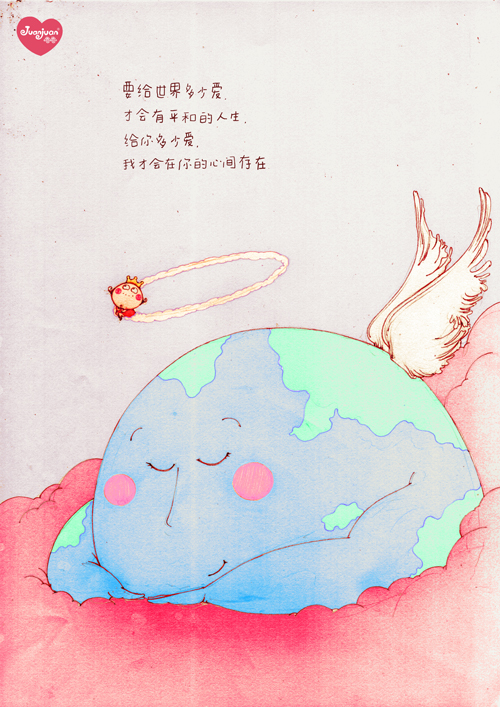 Juanjuan
要给世界多少爱,
才会有平和的人生.
给你多少爱,
我才会在你的心间存在.